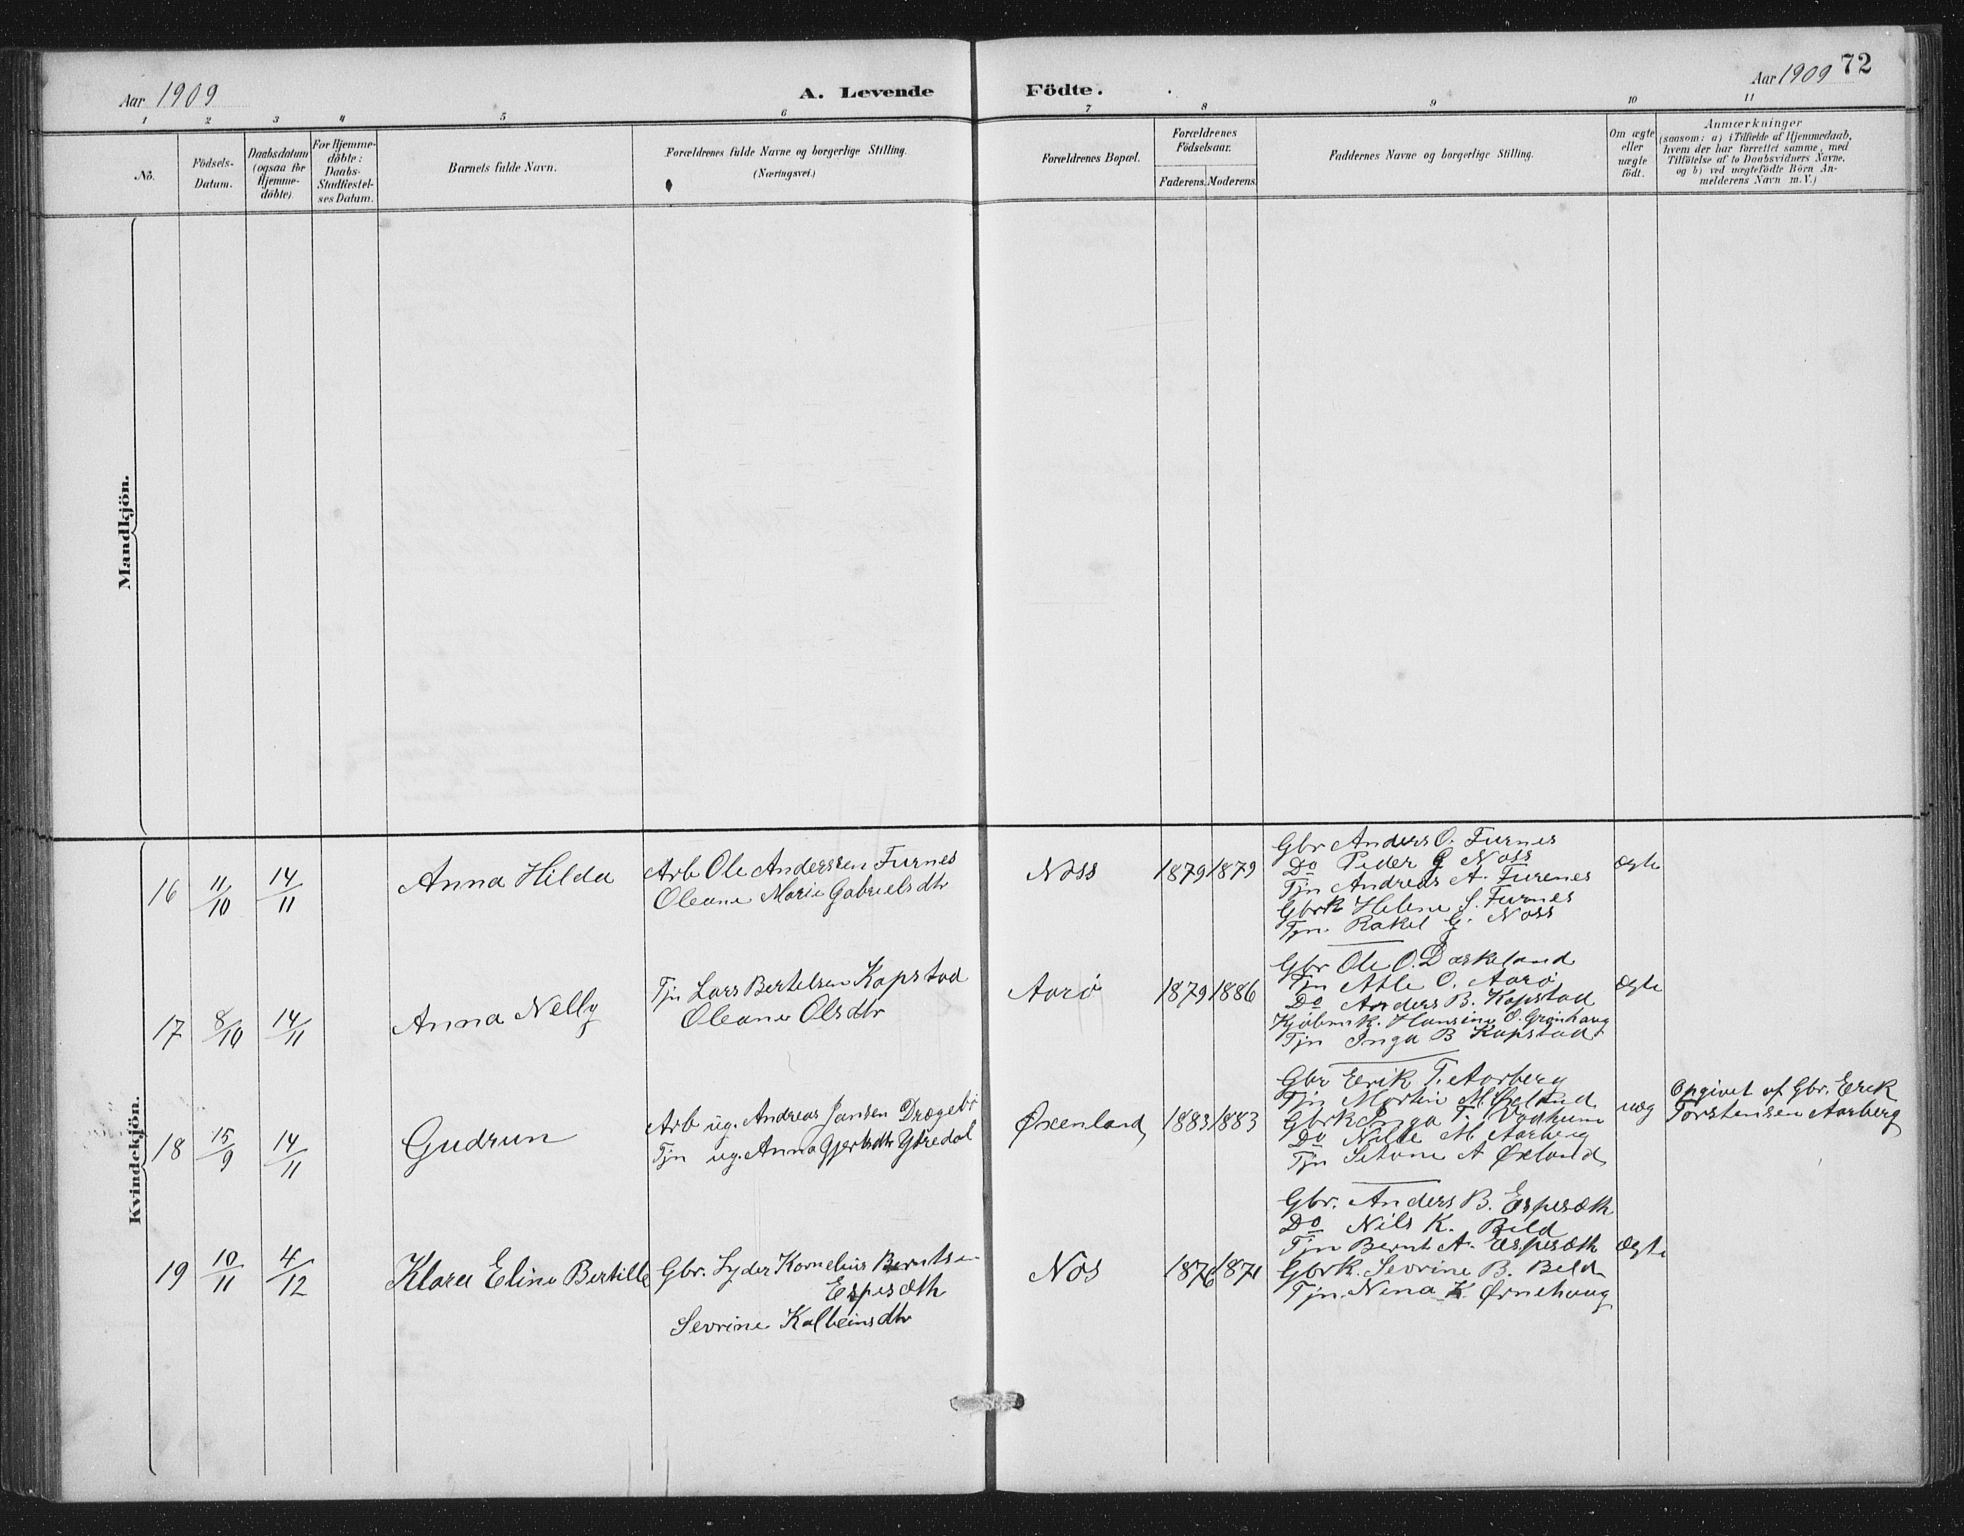 Aar 1909
A. Levende Födte.
Aar 1909 72
1 2 3 4 5 6 7 8 9 10 11
No.
Födsels-
Datum.
Daabsdatum
(ogsaa for
Hjemme-
döbte).
For Hjemme-
döbte:
Daabs-
Stadfæstel-
ses Datum.
Barnets fulde Navn.
Forældrenes fulde Navne og borgerlige Stilling.
(Næringsvei.)
Forældrenes Bopæl.
Forældrenes
Födselsaar.
Faderens. Moderens.
Faddernes Navne og borgerlige Stilling.
Om ægte
eller
uægte
födt.
Anmærkninger
(saasom: a) i Tilfælde af Hjemmedaab,
hvem der har forrettet samme, med
Tilföielse af to Daabsvidners Navne,
og b) ved uægtefödte Börn An-
melderens Navn m. V.)
Mandkjön.
Kvindekjön.
16 11/10 14/11 Anna Hilda
Arb Ole Anderssen Furnes
Oleane Marie Gabrielsdtr
Noss 1879 1879
Gbr Anders O. Furnes
Do Peder G Noss
Tjn Andreas A. Furenes
Gbrk Helene S. Furnes
Tjn. Rakel G. Noss
ægte
17 8/10 14/11 Anna Nelly
Tjn Lars Bertelsen Kapstad
Oleane Olsdtr
Aarø 1879 1886
Gbr Ole O. Daskeland
Tjn Atle O. Aarø
Do Anders B. Kapstad
Kjøbmk. Hansine O. Grønhaug
Tjn Inga B Kapstad
ægte
18 15/9 14/11 Gudrun
Arb ug. Andreas Jansen Drægebø
Tjn ug. Anna Gjertsdtr Ytredal
Øxenland 1883 1883
Gbr Eerik T. Aarberg
Tjn Martin M.
Gbrk Inga T. Vadheim
Do Nille M Aarberg
Tjn A Øxland
uæg
Opgivet af Gbr. Erik
Torstensen Aarberg
19 10/11 4/12 Klara Eline Bertille
Gbr. Lyder Kornelius Berntsen
Espesæth
Sevrine Kolbeinsdtr
Nos 1876 1871
Gbr. Anders B. Espesæth
Do Nils K. Beld
Tjn Bernt A. Espesæth
Gbrk. Sevrine B. Beld
Tjn. Nena K. Ørnehaug
ægte